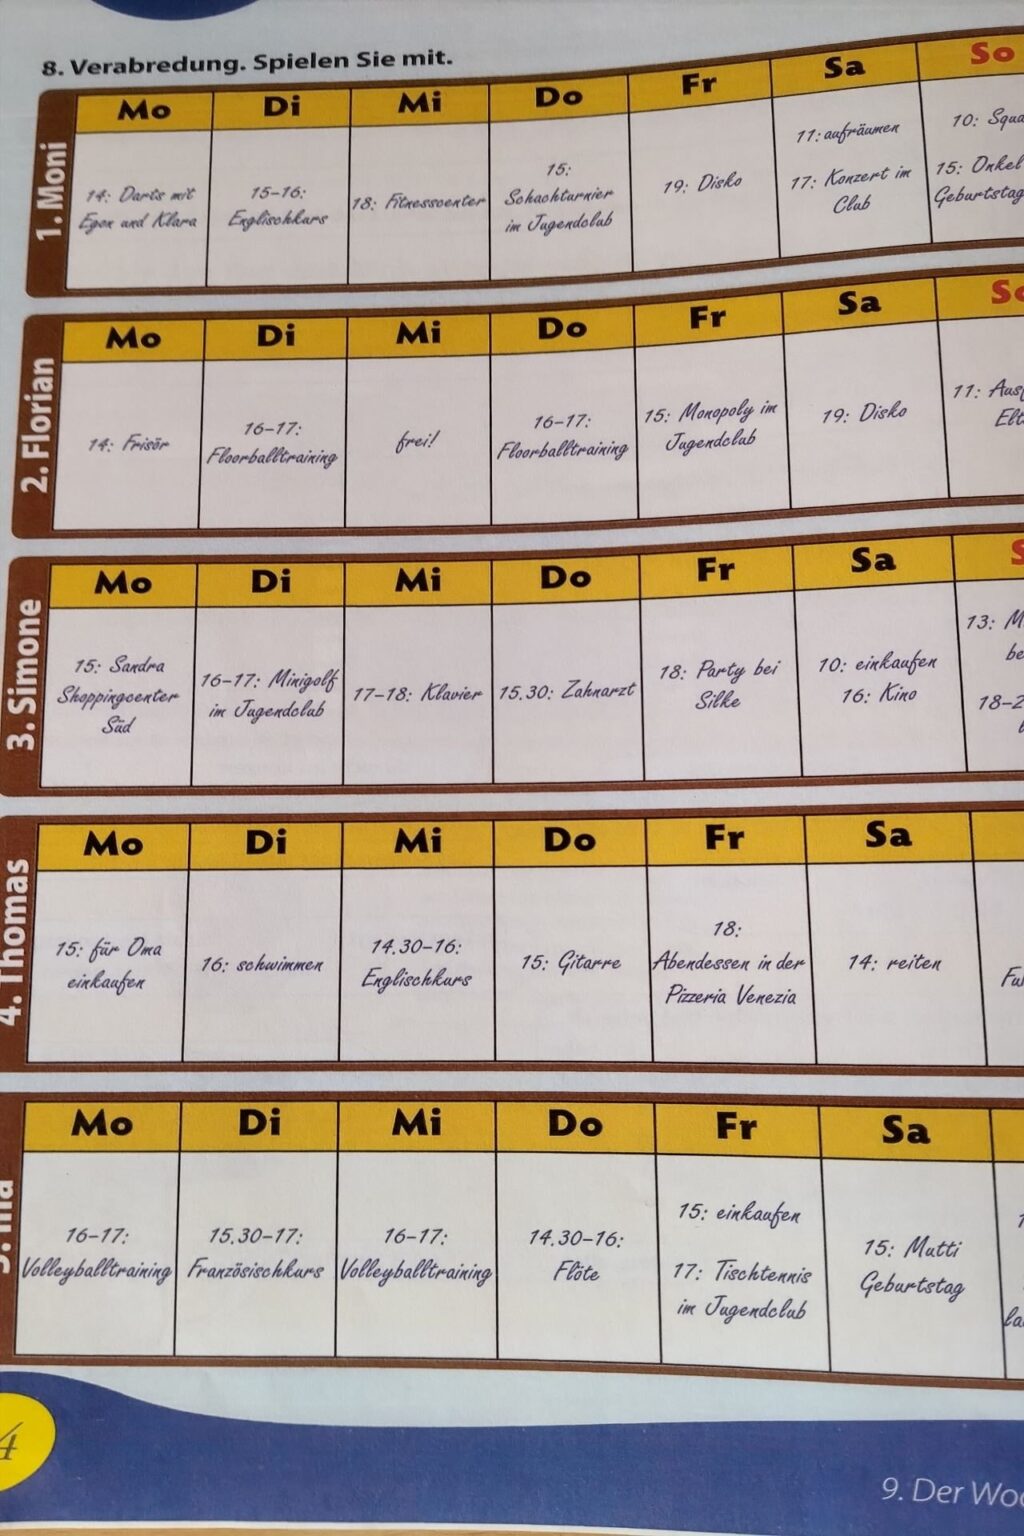 8. Verabredung. Spielen Sie mit.
1. Moni
Mo
Di
Mi
Do
Fr
Sa
So
14: Darts mit
Egon und Klara
15–16:
Englischkurs
18: Fitnesscenter
15:
Schachturnier
im Jugendclub
19: Disko
11: aufräumen
17: Konzert im
Club
10:
15: Onkel
Geburtstag
2. Florian
Mo
Di
Mi
Do
Fr
Sa
So
14: Frisör
16–17:
Floorballtraining
frei!
16–17:
Floorballtraining
15: Monopoly im
Jugendclub
19: Disko
11:
3. Simone
Mo
Di
Mi
Do
Fr
Sa
S
15: Sandra
Shoppingcenter
Süd
16–17: Minigolf
im Jugendclub
17–18: Klavier
15.30: Zahnarzt
18: Party bei
Silke
10: einkaufen
16: Kino
13:
4. Thomas
Mo
Di
Mi
Do
Fr
Sa
15: für Oma
einkaufen
16: schwimmen
14.30–16:
Englischkurs
15: Gitarre
18:
Abendessen in der
Pizzeria Venezia
14: reiten
Mo
Di
Mi
Do
Fr
Sa
16–17:
Volleyballtraining
15.30–17:
Französischkurs
16–17:
Volleyballtraining
14.30–16:
Flöte
15: einkaufen
17: Tischtennis
im Jugendclub
15: Mutti
Geburtstag
4
9. Der